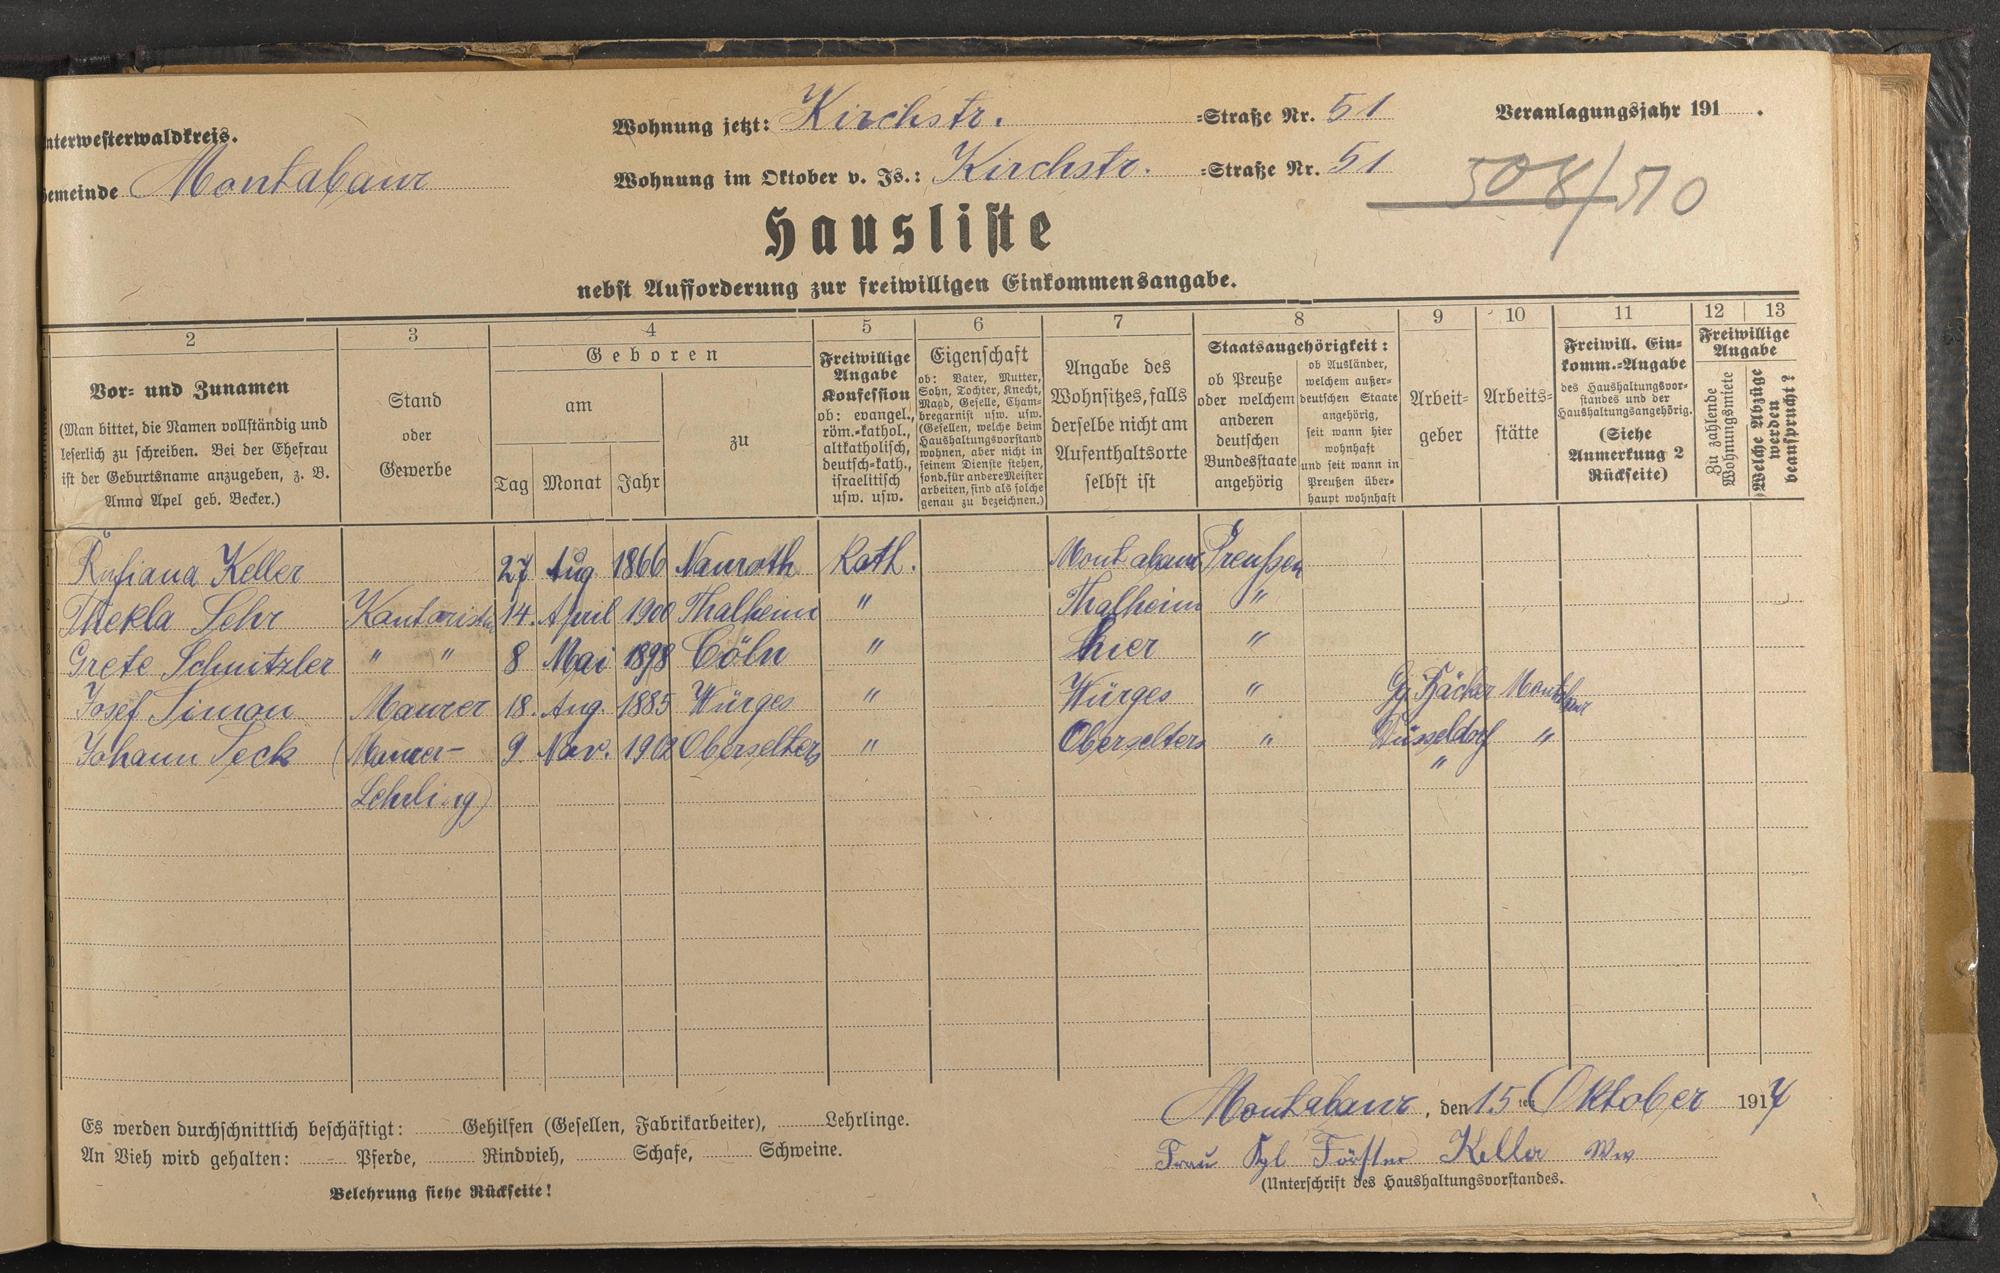 nterwesterwaldkreis.
Gemeinde Montabaur
Wohnung jetzt: Kirchstr. =Straße Nr. 51
Wohnung im Oktober v. Js.: Kirchstr. =Straße Nr. 51
Veranlagungsjahr 191 .
508/510
Hausliste
nebst Aufforderung zur freiwilligen Einkommensangabe.
2 3 4 5 6 7 8 9 10 11 12 13
Vor- und Zunamen
(Man bittet, die Namen vollständig und
leserlich zu schreiben. Bei der Ehefrau
ist der Geburtsname anzugeben, z. B.
Anna Apel geb. Becker.)
Stand
oder
Gewerbe
Geboren
am
Tag Monat Jahr
zu
Freiwillige
Angabe
Konfession
ob: evangel.,
röm.-kathol.,
altkatholisch,
deutsch-kath.,
israelitisch
usw. usw.
Eigenschaft
ob: Vater, Mutter,
Sohn, Tochter, Knecht,
Magd, Geselle, Cham-
bregarnist usw. usw.
(Gesellen, welche beim
Haushaltungsvorstand
wohnen, aber nicht in
seinem Dienste stehen,
sond. für andere Meister
arbeiten, sind als solche
genau zu bezeichnen.)
Angabe des
Wohnsitzes, falls
derselbe nicht am
Aufenthaltsorte
selbst ist
Staatsangehörigkeit:
ob Preuße
oder welchem
anderen
deutschen
Bundesstaate
angehörig
ob Ausländer,
welchem außer-
deutschen Staate
angehörig,
seit wann hier
wohnhaft
und seit wann in
Preußen über-
haupt wohnhaft
Arbeit-
geber
Arbeits-
stätte
Freiwill. Ein-
komm.-Angabe
des Haushaltungsvor-
standes und der
Haushaltungsangehörig.
(Siehe
Anmerkung 2
Rückseite)
Freiwillige
Angabe
Zu zahlende
Wohnungsmiete
Welche Abzüge
werden
beansprucht?
1 Keller 27 Aug 1866 Nauroth Kath. Montabaur Preußen
2 Thekla Sehr Kontoristin 14. April 1900 Thalheim " Thalheim "
3 Grete Schnitzler " " 8 Mai 1898 Cöln " hier "
4 Josef Simon Maurer 18. Aug. 1885 Würges " Würges " Montabaur
5 Johann Seck (Maurer- 9. Nov. 1902 Oberselters " Oberselters " Düsseldorf "
6 Lehrling) "
7
8
9
10
11
12
Es werden durchschnittlich beschäftigt: Gehilfen (Gesellen, Fabrikarbeiter), Lehrlinge.
An Vieh wird gehalten: Pferde, Rindvieh, Schafe, Schweine.
Belehrung siehe Rückseite!
Montabaur, den 15 ten Oktober 1917
Frau Kgl. Förster Keller Ww
(Unterschrift des Haushaltungsvorstandes.